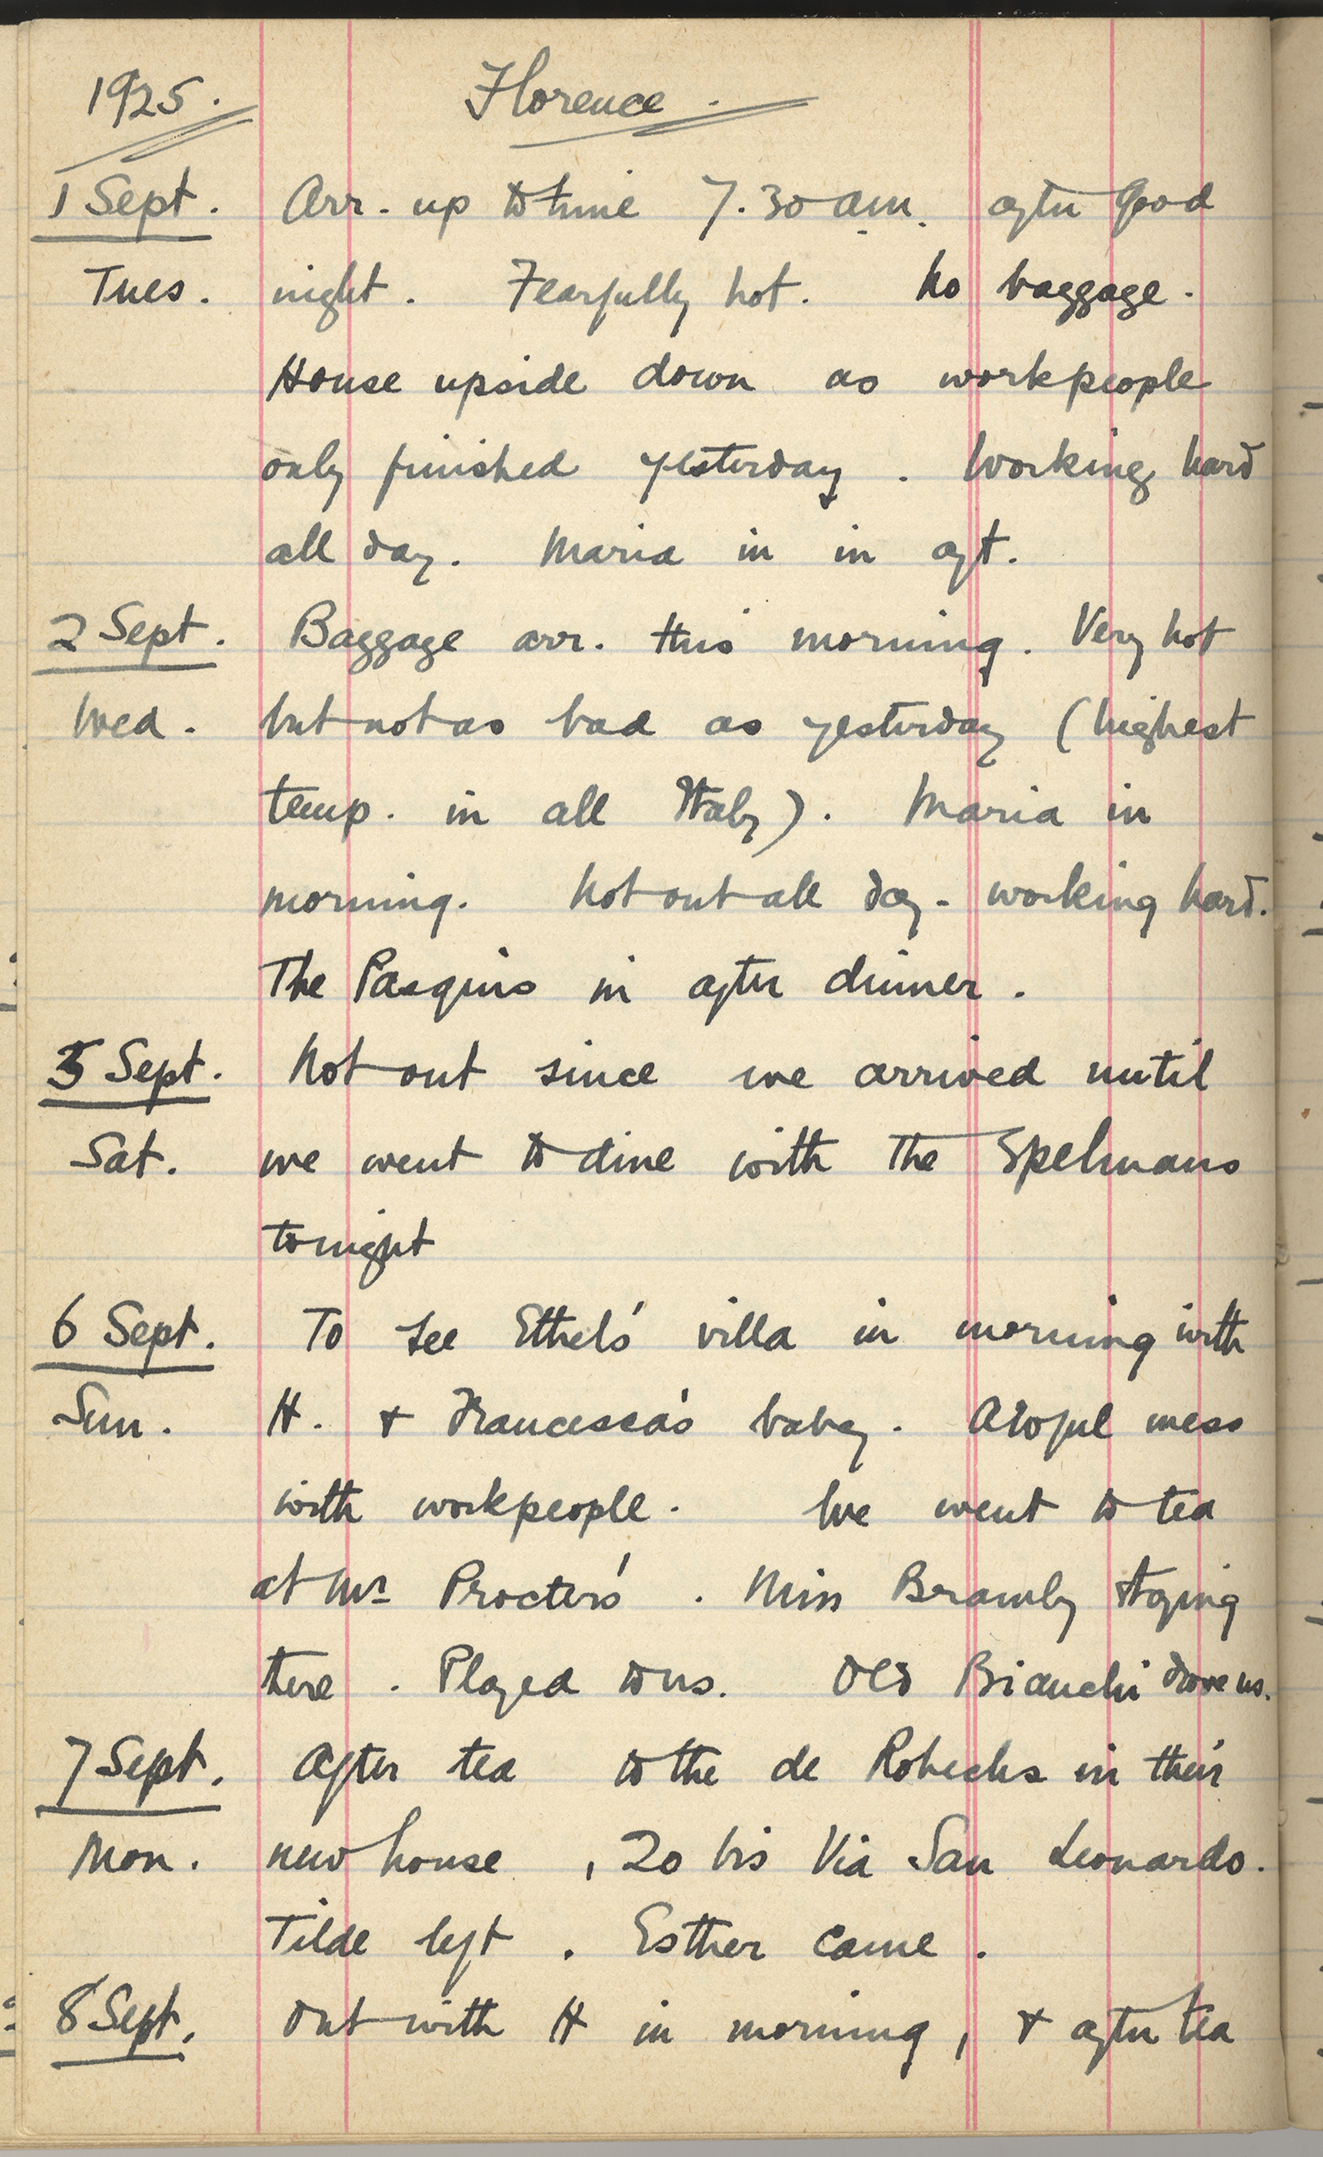 1925. Florence.
1 Sept. Arr. up to time 7.30 am. after good
Tues. night. Fearfully hot. No baggage.
House upside down as workpeople
only finished yesterday. Working hard
all day. Maria in in aft.
2 Sept. Baggage arr. this morning. Very hot
Wed. but not as bad as yesterday (highest
temp. in all Italy). Maria in
morning. Not out all day - working hard.
The Pasquis in after dinner.
5 Sept. Not out since we arrived until
Sat. we went to dine with the Spelmans
tonight
6 Sept. To see Ethel's villa in morning with
Sun. H. & Francesca's baby. Awful mess
with workpeople. We went to tea
at Mrs Procter's. Miss Bramly staying
there. Played to us. Old Bianchi drove us.
7 Sept. After tea to the de Robecks in their
Mon. new house, 20 bis Via San Leonardo.
Tilde left. Esther came.
8 Sept. Out with H in morning, & after tea